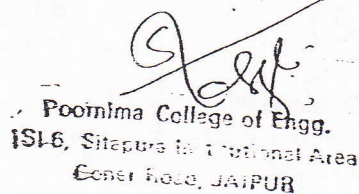 Poornima College of Engg.
ISI-6, Sitapura Institutional Area
Goner Road, JAIPUR